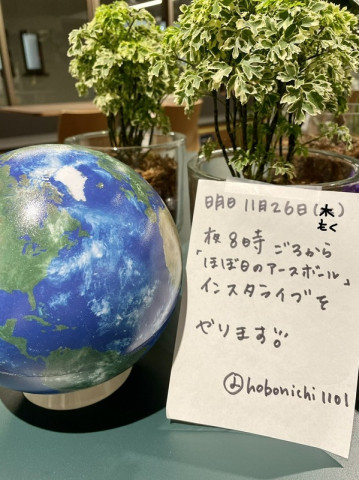 明日11月26日(木)
もく
夜8時ごろから
「ほぼ日のアースボール」
インスタライブを
やります!!
@hobonichi1101